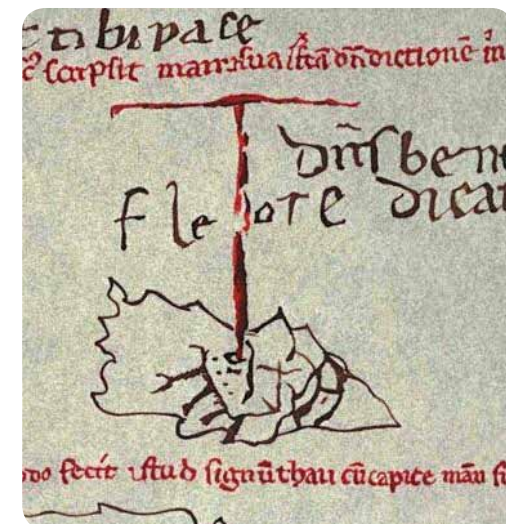 tibi pace
scripsit manu sua istā bn̄dictionē in
dn̄s bene
f leo te dicat
modo fecit istud signū thau cū capite manu